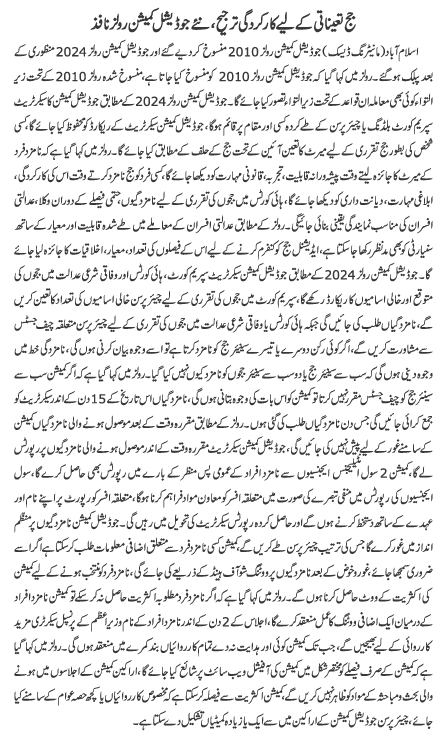 جج تعیناتی کے لیے کارکردگی ترجیح، نئے جوڈیشل کمیشن رولز نافذ
اسلام آباد (مانیٹرنگ ڈیسک) جوڈیشل کمیشن رولز 2010 منسوخ کر دیے گئے اور جوڈیشل کمیشن رولز 2024 منظوری کے
بعد پبلک ہو گئے۔ رولز میں کہا گیا کہ جوڈیشل کمیشن رولز 2010 کو منسوخ کیا جاتا ہے، منسوخ شدہ رولز 2010 کے تحت زیر
التواء کوئی بھی معاملہ ان قواعد کے تحت زیر التواء تصور کیا جائے گا۔ جوڈیشل کمیشن رولز 2024 کے مطابق جوڈیشل کمیشن کا سیکرٹریٹ
سپریم کورٹ بلڈنگ یا چیئر پرسن کے طے کردہ کسی اور مقام پر قائم ہوگا، جوڈیشل کمیشن سیکرٹریٹ کے ریکارڈ کو محفوظ کیا جائے گا، کسی
شخص کی بطور جج تقرری کے لیے میرٹ کا تعین آئین کے تحت جج کے حلف کے مطابق کیا جائے گا۔ رولز میں کہا گیا ہے کہ نامزد فرد
کے میرٹ کا جائزہ لیتے وقت پیشہ ورانہ قابلیت، تجربہ، قانونی مہارت کو دیکھا جائے گا، کسی فرد کو جج نامزد کرتے وقت اس کی کارکردگی،
ابلاغی مہارت، دیانت داری کو دیکھا جائے گا، ہائی کورٹس میں ججوں کی تقرری کے لیے نامزدگیوں، حتمی فیصلے کے دوران وکلا، عدالتی
افسران کی مناسب نمائندگی یقینی بنائی جائیگی۔ رولز میں کہا گیا ہے کہ عدالتی افسران کے معاملے میں طے شدہ قابلیت اور معیار کے ساتھ
سنیارٹی کو بھی مدنظر رکھا جا سکتا ہے، ایڈیشنل جج کو کنفرم کرنے کے لیے اس کے فیصلوں کی تعداد، معیار، اخلاقیات کا جائزہ لیا جائے
گا۔ جوڈیشل کمیشن رولز 2024 کے مطابق جوڈیشل کمیشن سیکرٹریٹ سپریم کورٹ، ہائی کورٹس اور وفاقی شرعی عدالت میں ججوں کی
متوقع اور خالی اسامیوں کا ریکارڈ رکھے گا، سپریم کورٹ میں ججوں کی تقرری کے لیے چیئر پرسن خالی اسامیوں کی تعداد کا تعین کریں
گے، نامزدگیاں طلب کی جائیں گی جبکہ ہائی کورٹس یا وفاقی شرعی عدالت میں ججوں کی تقرری کے لیے چیئر پرسن متعلقہ چیف جسٹس
سے مشاورت کریں گے، اگر کوئی رکن دوسرے یا تیسرے سینیئر جج کو نامزد کرتا ہے تو اسے وجوہ بیان کرنی ہوں گی، نامزدگی خط میں
وجوہ دینی ہوں گی کہ سب سے سینیئر جج یا دو سب سے سینیئر ججوں کو نامزد کیوں نہیں کیا گیا۔ رولز میں کہا گیا ہے کہ کمیشن اگر سب سے
سینیئر جج کو چیف جسٹس مقرر نہیں کرتا تو کمیشن کو اس بات کی وجوہ بتانی ہوں گی، نامزدگیاں اس تاریخ کے 15 دن کے اندر سیکرٹریٹ کو
جمع کرائی جائیں گی جس دن نامزدگیاں طلب کی گئی ہوں۔ رولز کے مطابق مقررہ وقت کے بعد موصول ہونے والی نامزدگیاں کمیشن
کے سامنے غور کے لیے پیش نہیں کی جائیں گی، جوڈیشل کمیشن سیکرٹریٹ مقررہ وقت کے اندر موصول ہونے والی نامزدگیوں پر رپورٹس
لے گا، کمیشن 2 سول انٹیلیجنس ایجنسیوں سے نامزد افراد کے عمومی پس منظر کے بارے میں رپورٹس بھی حاصل کرے گا،
ایجنسیوں کی رپورٹس میں منفی تبصرے کی صورت میں متعلقہ افسر کو معاون مواد فراہم کرنا ہوگا، متعلقہ افسر کو رپورٹ پر اپنے نام اور
عہدے کے ساتھ دستخط کرنے ہوں گے اور حاصل کردہ رپورٹس سیکرٹریٹ کی تحویل میں رہیں گی۔ جوڈیشل کمیشن نامزدگیوں پر منظم
انداز میں غور کرے گا جس کی ترتیب چیئر پرسن طے کریں گے، کمیشن کسی نامزد فرد سے متعلق اضافی معلومات طلب کر سکتا ہے اگر اسے
ضروری سمجھا جائے، غور و خوض کے بعد نامزدگیوں پر ووٹنگ شو آف ہینڈ کے ذریعے کی جائے گی، نامزد فرد کو منتخب ہونے کے لیے کمیشن
کی اکثریت کے ووٹ حاصل کرنا ہوں گے۔ رولز میں کہا گیا ہے کہ اگر نامزد فرد مطلوبہ اکثریت حاصل نہ کر سکے تو کمیشن نامزد افراد
کے درمیان ایک اضافی ووٹنگ کا عمل منعقد کرے گا، اجلاس کے 2 دن کے اندر نامزد افراد کے نام وزیر اعظم کے پرنسپل سیکرٹری مزید
کارروائی کے لیے بھیجیں گے، جب تک کمیشن کوئی اور ہدایت نہ دے تمام کارروائیاں بند کمرے میں منعقد ہوں گی۔ رولز میں کہا گیا
ہے کہ کمیشن کے صرف فیصلے کو مختصر شکل میں کمیشن کی آفیشل ویب سائٹ پر شائع کیا جائے گا، اراکین کمیشن کے اجلاسوں میں ہونے
والی بحث و مباحثے کے مواد کو ظاہر نہیں کریں گے، کمیشن اکثریت سے فیصلہ کر سکتا ہے کہ مخصوص کارروائیاں یا کچھ حصہ عوام کے سامنے کیا
جائے، چیئر پرسن جوڈیشل کمیشن کے اراکین میں سے ایک یا زیادہ کمیٹیاں تشکیل دے سکتا ہے۔